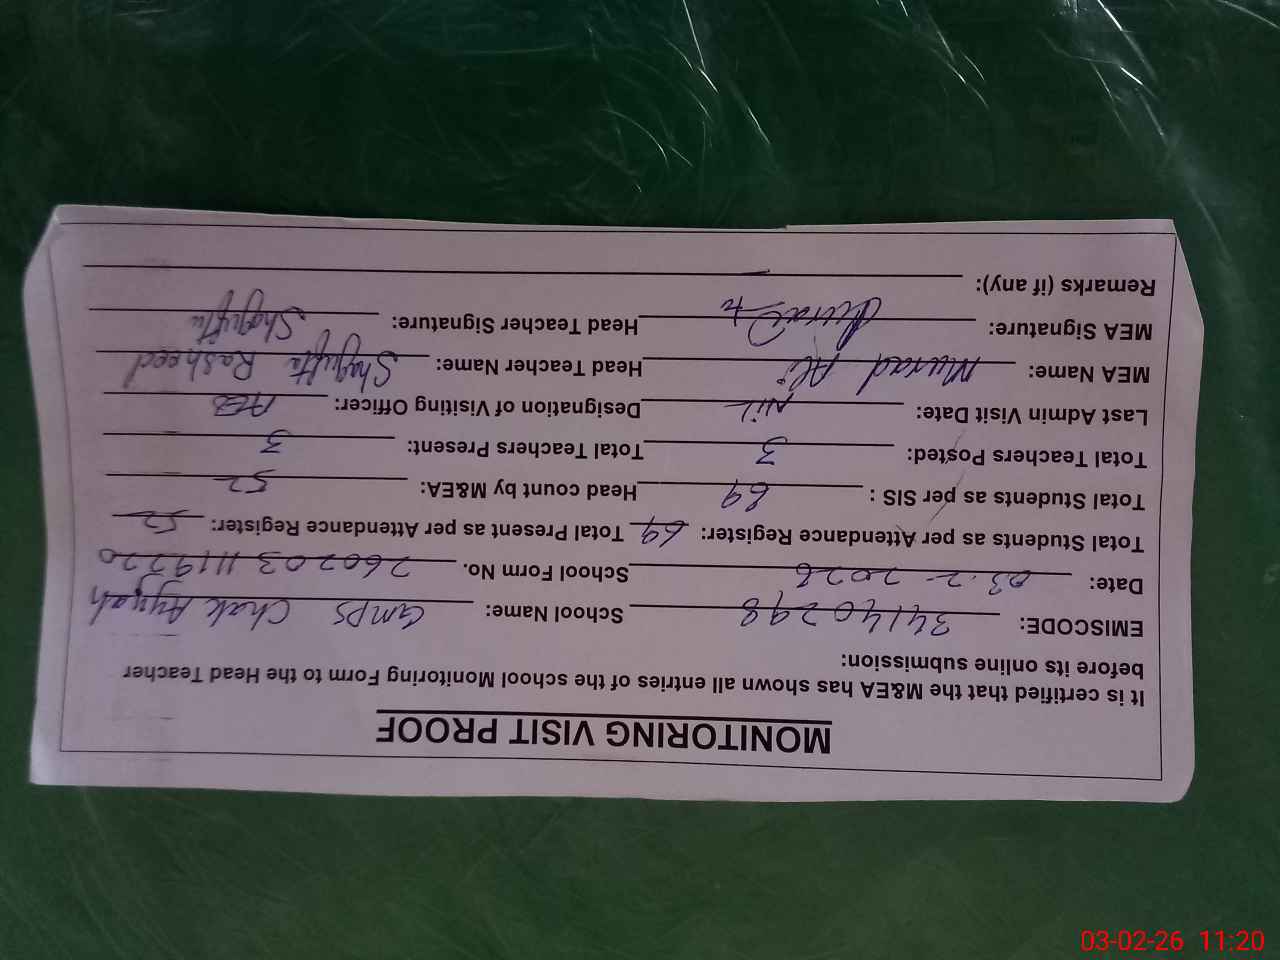 MONITORING VISIT PROOF
It is certified that the M&EA has shown all entries of the school Monitoring Form to the Head Teacher
before its online submission:
EMISCODE: 34140298 School Name: GMPS Chak Ayyah
Date: 03-2-2026 School Form No. 2602031119220
Total Students as per Attendance Register: 69 Total Present as per Attendance Register: 52
Total Students as per SIS : 69 Head count by M&EA: 52
Total Teachers Posted: 3 Total Teachers Present: 3
Last Admin Visit Date: Nil Designation of Visiting Officer:
MEA Name: Murad Ali Head Teacher Name: Shagufta Rasheed
MEA Signature: Head Teacher Signature: Shagufta
Remarks (if any):
03-02-26 11:20